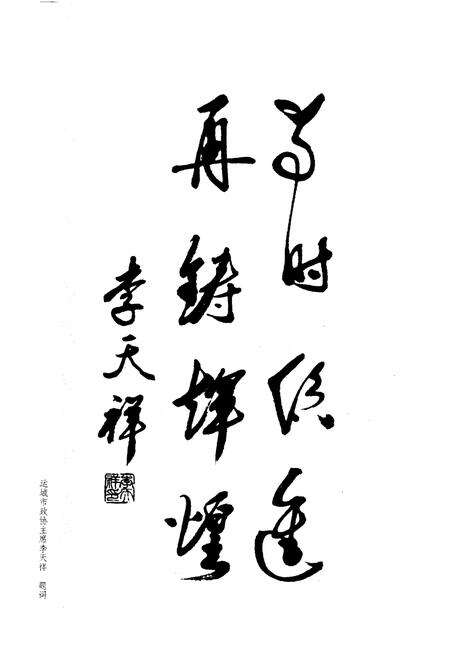 与时俱进
再铸辉煌
李天祥
运城市政协主席李天祥 题词